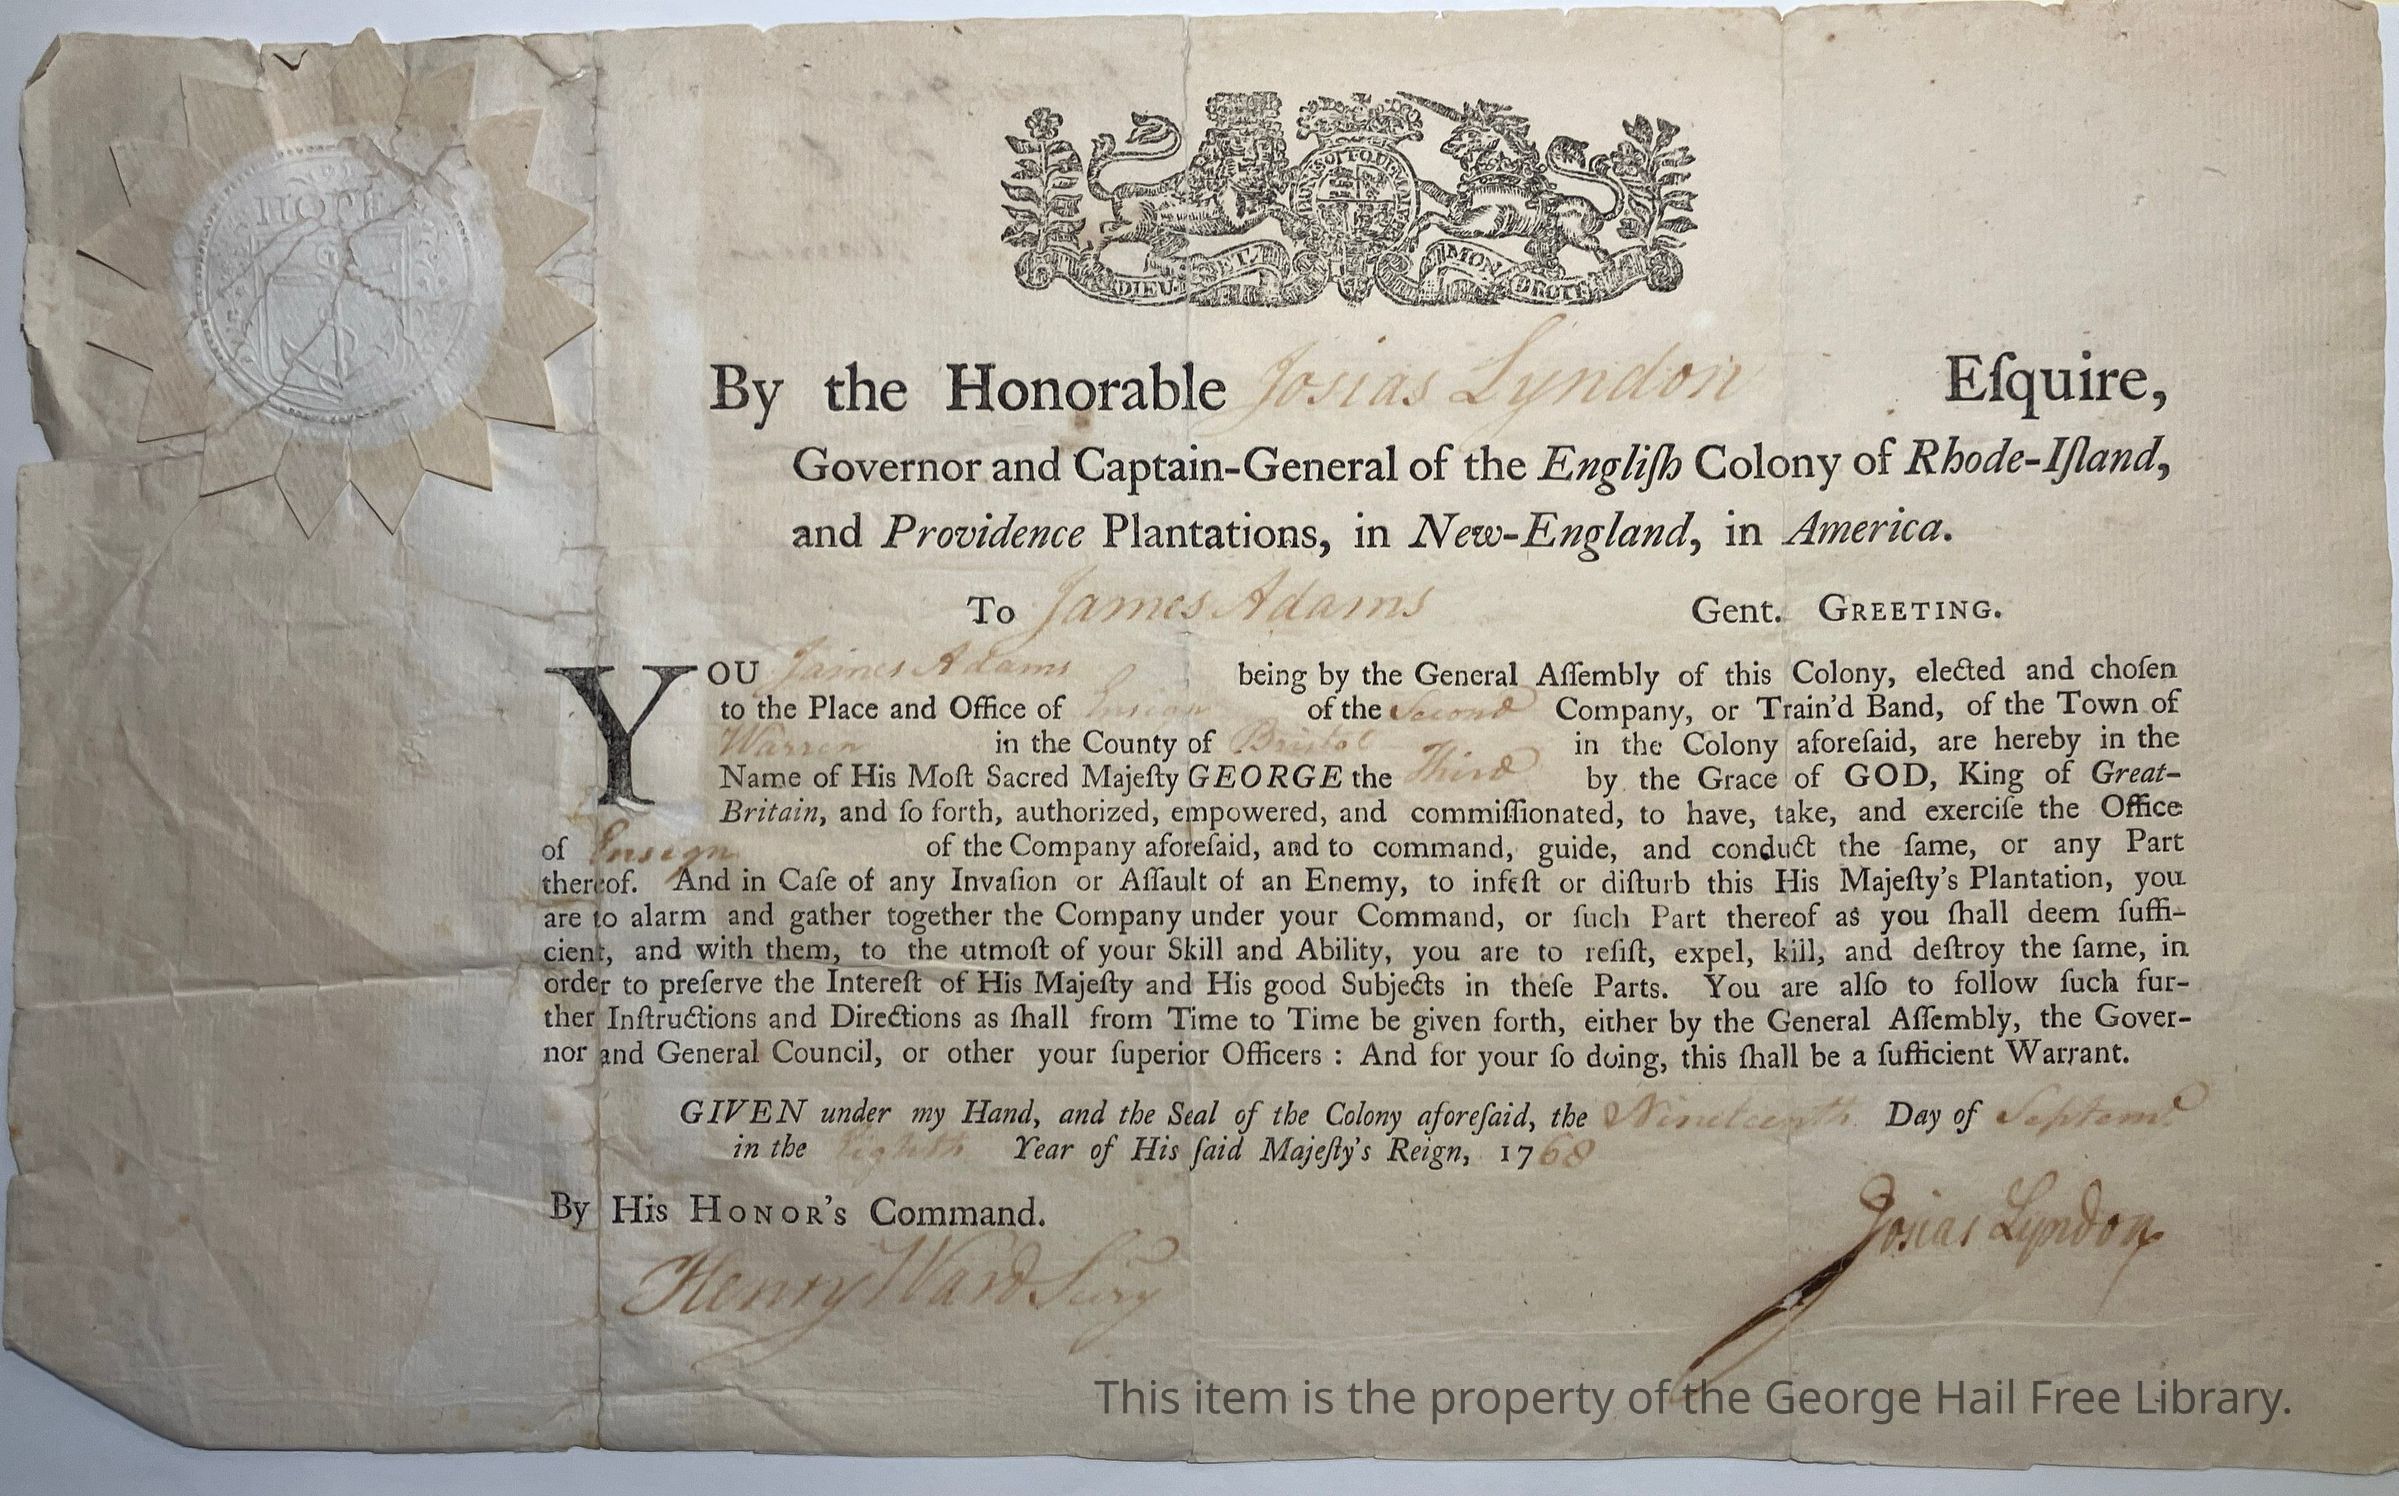 HOPE
HONI SOIT QUI MAL Y
DIEU ET MON DROIT
By the Honorable Josias Lyndon Eſquire,
Governor and Captain-General of the Engliſh Colony of Rhode-Iſland,
and Providence Plantations, in New-England, in America.
To James Adams Gent. GREETING.
YOU James Adams being by the General Aſſembly of this Colony, elected and choſen
to the Place and Office of Ensign of the Second Company, or Train'd Band, of the Town of
Warren in the County of Bristol in the Colony aforeſaid, are hereby in the
Name of His Moſt Sacred Majeſty GEORGE the Third by the Grace of GOD, King of Great-
Britain, and ſo forth, authorized, empowered, and commiſſionated, to have, take, and exerciſe the Office
of Ensign of the Company aforeſaid, and to command, guide, and conduct the ſame, or any Part
thereof. And in Caſe of any Invaſion or Aſſault of an Enemy, to infeſt or diſturb this His Majeſty's Plantation, you
are to alarm and gather together the Company under your Command, or ſuch Part thereof as you ſhall deem ſuffi-
cient, and with them, to the utmoſt of your Skill and Ability, you are to reſiſt, expel, kill, and deſtroy the ſame, in
order to preſerve the Intereſt of His Majeſty and His good Subjects in theſe Parts. You are alſo to follow ſuch fur-
ther Inſtructions and Directions as ſhall from Time to Time be given forth, either by the General Aſſembly, the Gover-
nor and General Council, or other your ſuperior Officers : And for your ſo doing, this ſhall be a ſufficient Warrant.
GIVEN under my Hand, and the Seal of the Colony aforeſaid, the Nineteenth Day of Septemr
in the Eighth Year of His ſaid Majeſty's Reign, 1768
By His HONOR's Command.
Josias Lyndon
Henry Ward Secry
This item is the property of the George Hail Free Library.